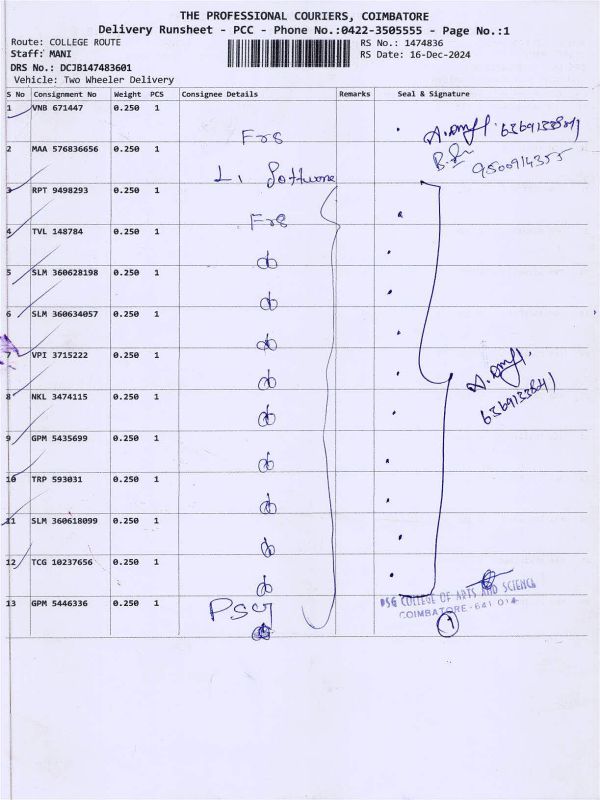 THE PROFESSIONAL COURIERS, COIMBATORE
Delivery Runsheet - PCC - Phone No.:0422-3505555 - Page No.:1
Route: COLLEGE ROUTE RS No.: 1474836
Staff: MANI RS Date: 16-Dec-2024
DRS No.: DCJB147483601
Vehicle: Two Wheeler Delivery
S No Consignment No Weight PCS Consignee Details Remarks Seal & Signature
1 VNB 671447 0.250 1 Frs
2 MAA 576836656 0.250 1 9500914355
Software
3 RPT 9498293 0.250 1 Frs
4 TVL 148784 0.250 1 do
5 SLM 360628198 0.250 1 do
6 SLM 360634057 0.250 1 do
7 VPI 3715222 0.250 1 do
8 NKL 3474115 0.250 1 do
9 GPM 5435699 0.250 1 do
10 TRP 593031 0.250 1 do
11 SLM 360618099 0.250 1 do
12 TCG 10237656 0.250 1 do
PSG COLLEGE OF ARTS AND SCIENCE
COIMBATORE-641 014
13 GPM 5446336 0.250 1 PSG 1